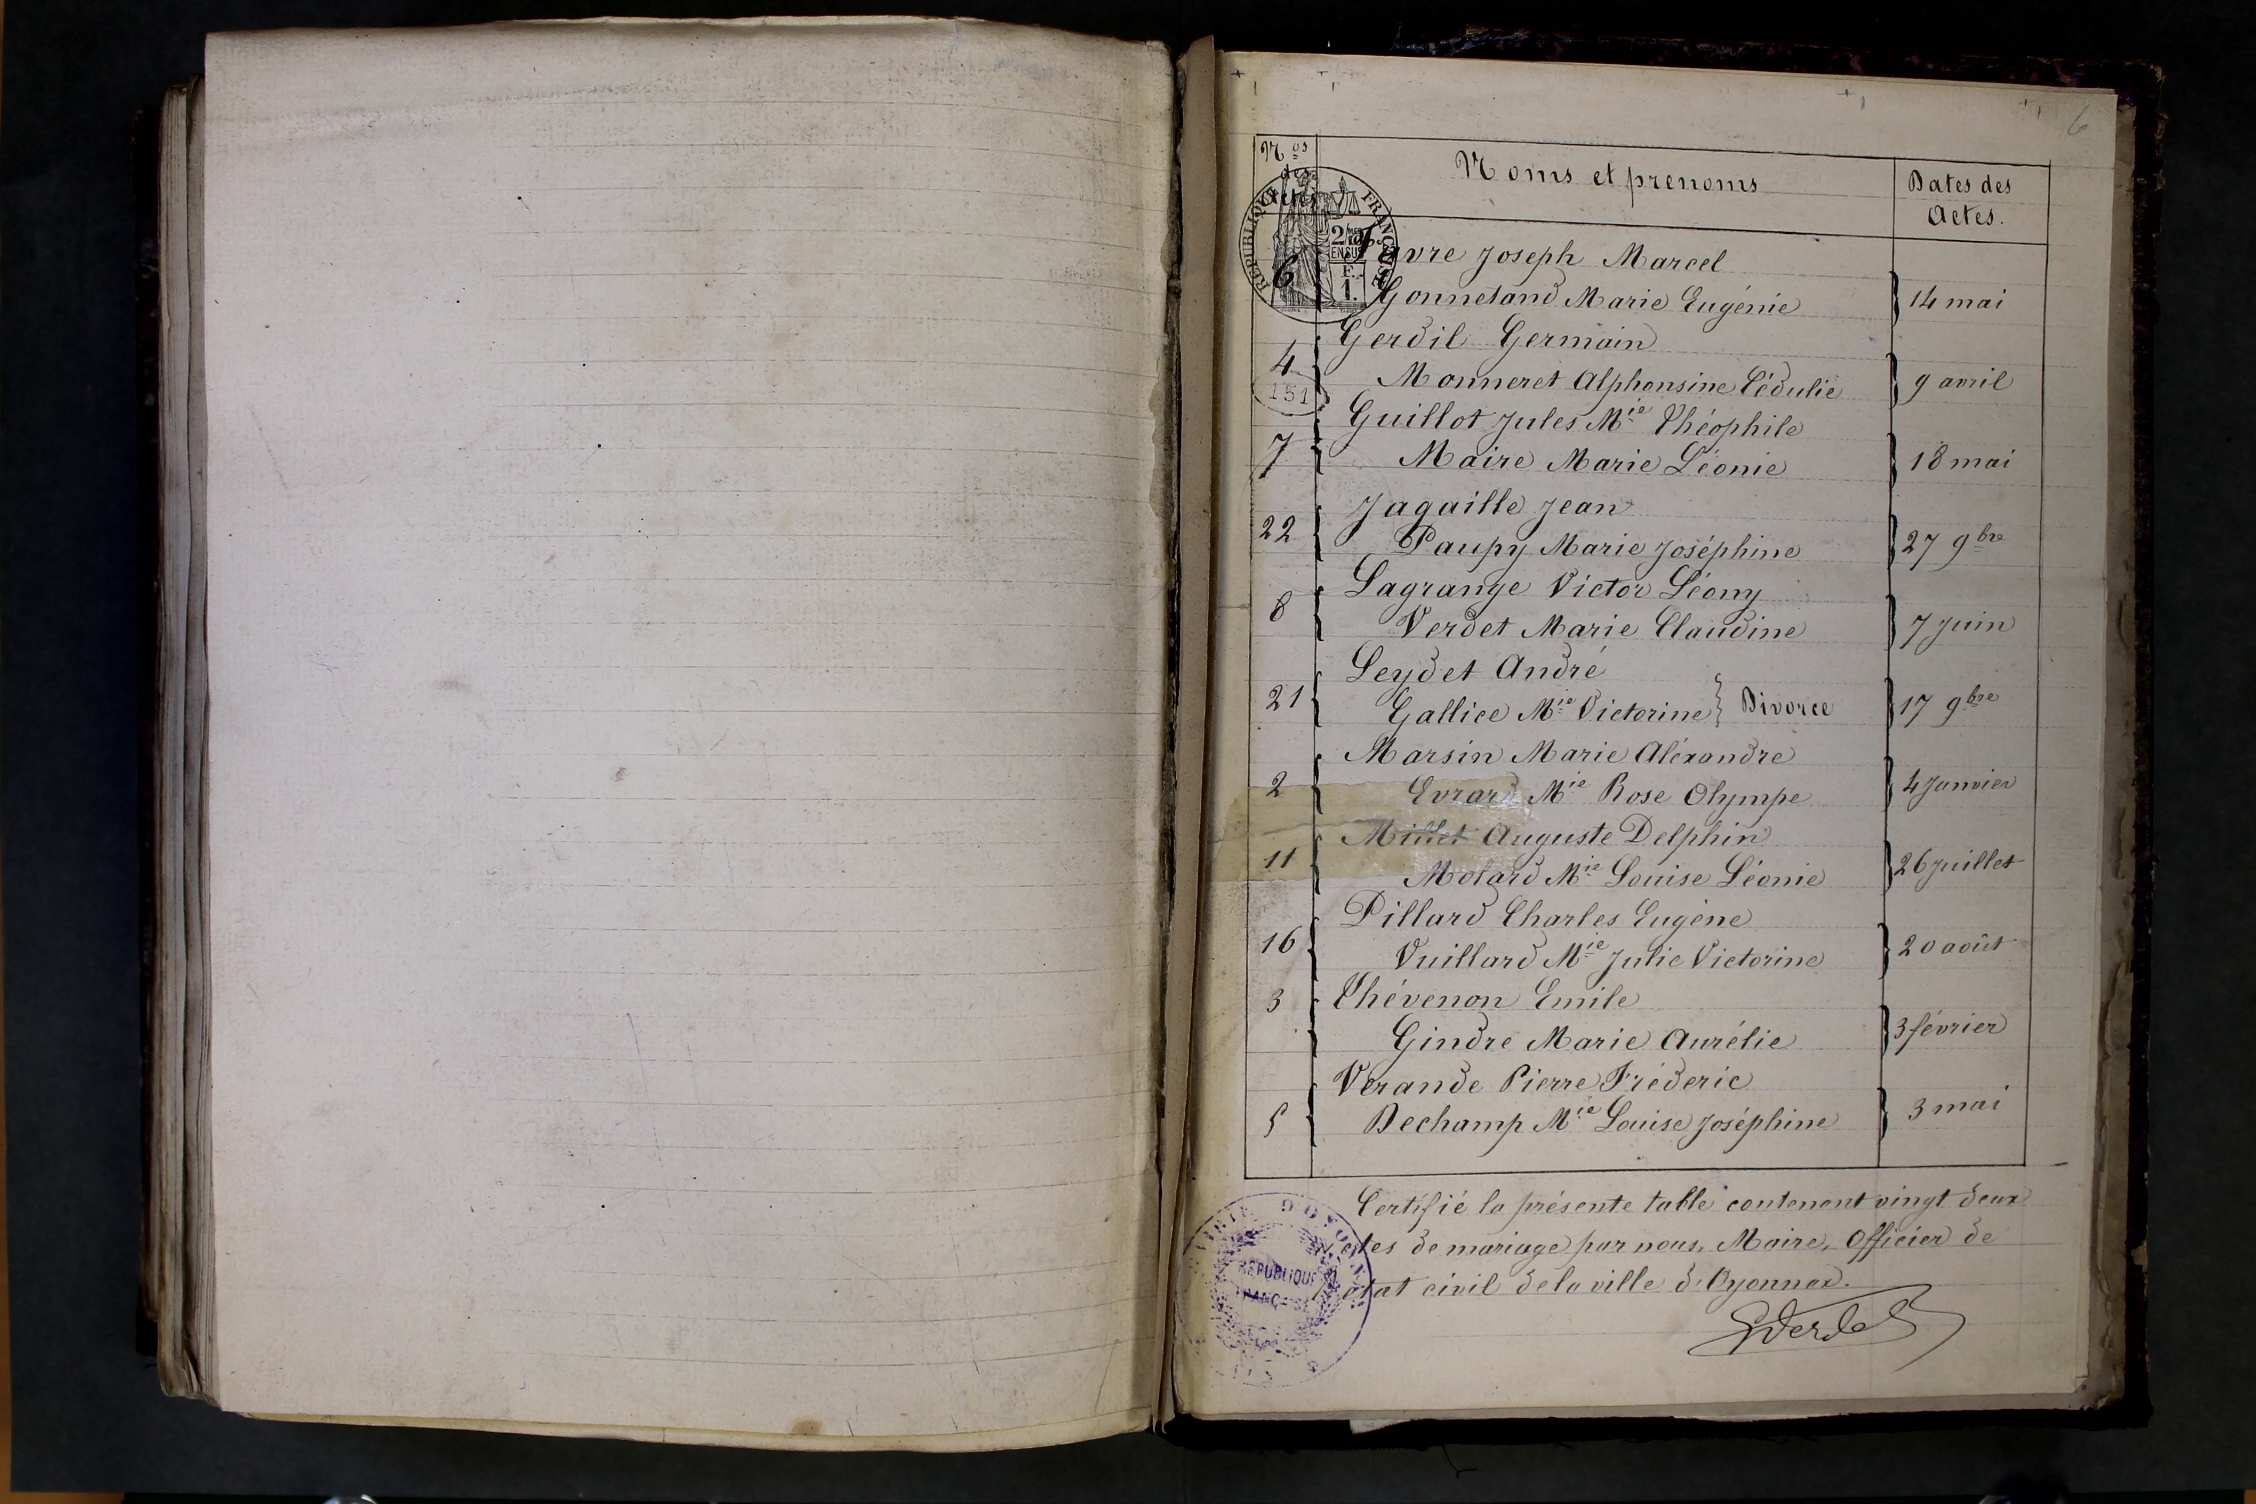 6
Nos des Actes
Noms et prenoms
Dates des Actes.
RÉPUBLIQUE FRANÇAISE
2 EN SUS
F.
1.
6 Favre Joseph Marcel
Gonnetand Marie Eugénie 14 mai
Gerdil Germain
4 Monneret Alphonsine Cédulie 9 avril
151
Guillot Jules Mie Théophile
7 Maire Marie Léonie 18 mai
Jagaille Jean
22 Paupy Marie Joséphine 27 9bre
Lagrange Victor Léony
8 Verdet Marie Claudine 7 Juin
Leydet André
21 Gallice Mie Victorine } Divorce 17 9bre
Marsin Marie Aléxandre
2 Evrard Mie Rose Olympe 4 Janvier
Millet Auguste Delphin
11 Molard Mie Louise Léonie 26 Juillet
Pillard Charles Eugène
16 Vuillard Mie Julie Victorine 20 août
3 Thévenon Emile
Gindre Marie Aurélie 3 février
Verande Pierre Fréderic
5 Dechamp Mie Louise Joséphine 3 mai
Certifié la présente table contenant vingt deux
actes de mariage par nous, Maire, Officier de
l'état civil de la ville d'Oyonnax.
MAIRIE D'OYONNAX
RÉPUBLIQUE
FRANÇAISE
Verdet